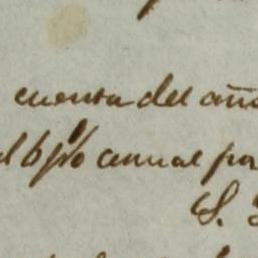 cuenta del año
al 6 p% anual por
S.